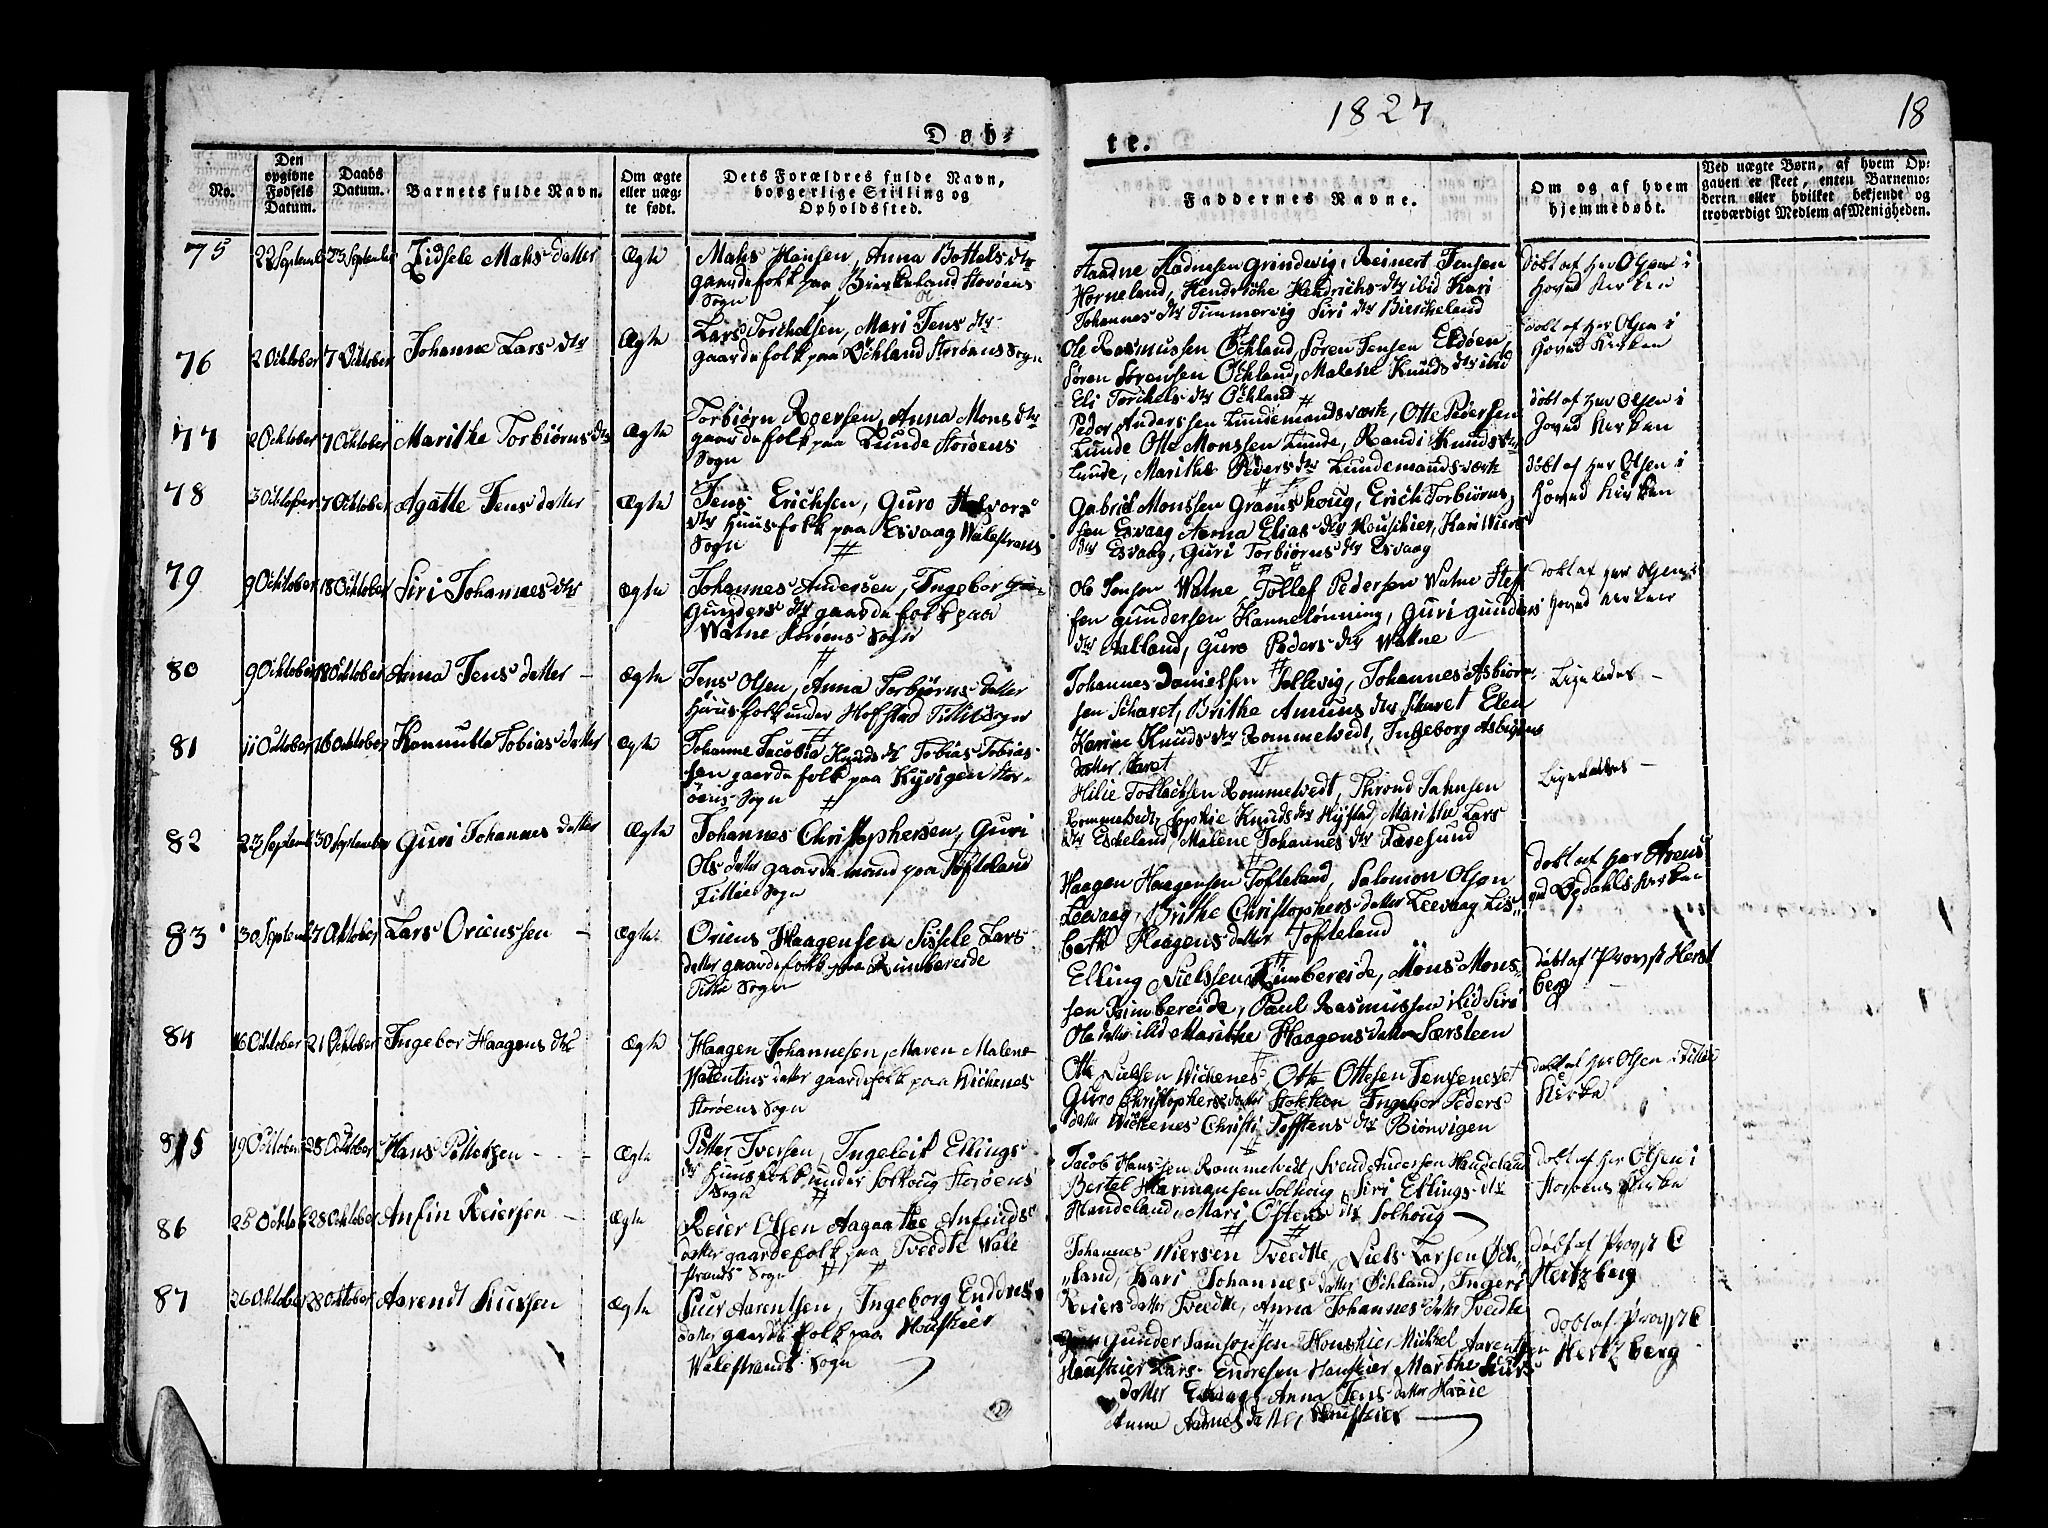 1827
18
Døb-
te.
No.
Den
opgivne
Fødsels
Datum.
Daabs
Datum.
Barnets fulde Navn.
Om ægte
eller uæg-
te født.
Dets Forældres fulde Navn,
borgerlige Stilling og
Opholdssted.
Faddernes Navne.
Om og af hvem
hjemmedøbt.
Ved uægte Børn, af hvem Op-
gaven er skeet, enten Barnemo-
deren eller hvilket bekjendt og
troværdigt Medlem af Menigheden.
75
22 Septemb 23 September Zidsele Mahs datter
Ægte
Mahs Hansen, Anna Bottels dtr
gaardefolk paa Bierkeland Storøens
Sogn
Aadne Aadnesen Grindevig, Reinert Jensen
Horneland, Hendriche Hendrichs dtr ibid Kari
Johannes dtr Tummervig Siri dtr Bierckeland
døbt af Her Olsen i
Hoved Kirken
76
2 Ochtober 7 Ochtober Johanne Lars dtr
Ægte
Lars Torchelsen, Mari Jens dtr
gaardefolk paa Öchland Storøens Sogn
Ole Rasmussen Öchland, Søren Jensen Eldøen,
Søren Sørensen Öchland, Malene Knuds dtr ibid
Eli Torchels dtr Öchland
døbt af Her Olsen i
Hoved Kirken
77
2 Ochtober 7 Ochtober Marithe Torbiørns dtr
Ægte
Torbiørn Roersen, Anna Mons dtr
gaardefolk paa Lunde Storøens
Sogn
Peder Anderssen Lundemandsværk, Otte Pedersen
Lunde Otte Monssen Lunde, Randi Knuds dtr
Lunde, Marithe Peders dtr Lundemandsværk
døbt af Her Olsen i
Hoved Kirken
78
3 Ochtober 7 Ochtober Agatte Jens datter
Ægte
Jens Erichsen, Guro Halvors
dtr Huusfolk paa Esvaag Walestrans
Sogn
Gabriel Monssen Gramshoug, Erich Torbiørns
sen Esvaag Anna Elias dtr Houskier, Kari Wiers
dtr Esvaag, Guri Torbiørns dtr Esvaag
døbt af Her Olsen i
Hoved Kirken
79
9 Ochtober 18 Ochtober Siri Johannes dtr
Ægte
Johannes Andersen, Ingebor
Gunders dtr gaardefolk paa
Watne Storøens Sogn
Ole Jensen Watne, Tollef Pedersen Watne Stef
fen Gundersen Kannelønning, Guri Gunders
dtr Aalland, Guro Peders dtr Wattne
døbt af Her Olsen i
Hoved Kirken
80
9 Ochtober 18 Ochtober Anna Jens datter
Ægte
Jens Olsen, Anna Torbiørns datter
Huusfolk under Hofstad Fitie Sogn
Johannes Danielsen Tollevig, Johannes Asbiørn-
sen Scharet, Brithe Amuns dtr Skaret Elen
Karine Knuds dtr Rommetvedt, Ingeborg Asbiørns
datter Skaret
Ligeledes
81
11 October 18 Ochtober Tobias datter
Ægte
Johanne Jacobia Knuds dtr Tobias Tobias-
sen gaardefolk paa Kyvigen Stor-
øens Sogn
Rommetvedt, Thrond Jahnsen
Rommetvedt, Sophie Knuds dtr Hystad, Marithe Lars
dtr Escheland, Malene Johannes dtr Færesund
Ligeledes
82
23 Septemb 30 September Guri Johannes datter
Ægte
Johannes Christophersen, Guri
Ols datter gaardemand paa Tofteland
Fitie Sogn
Haagen Haagensen Tofteland, Salomon Olsen
Leevaag, Brithe Christophers datter Leevaag Lis-
beth Haagens datter Tofteland
døbt af Her Arens
ved Øgdahls Kirken
83
30 Septemb 7 Ochtober Lars Orienssen
Ægte
Oriens Haagensen Sissele Lars
datter gaardefolk paa Rimbereide
Fitie Sogn
Elling Nielssen Rimbereide, Mons Mons-
sen Rimbereide, Paul Rasmussen ibid Siri
Ols datter ibid Marithe Haagens datter Særsteen
døbt af Provst Herst
berg
84
16 Ochtober 21 Ochtober Ingebor Haagens dtr
Ægte
Haagen Johannesen, Maren Malene
Walentins datter gaardefolk paa Wichenes
Storøens Sogn
Otte Nielsen Wichenes, Otte Ottesen Jensenest
Guro Christophers datter Stokken Ingebor Peders
datter Wichenes Christi Tofftens dtr Biørnvigen
døbt af Her Olsen i Fitie
Kirke
85
19 October 28 October Hans Pittersen
Ægte
Pitter Iversen, Ingeleif Ellings
dtr Huusfolk under Solhoug Storøens
Sogn
Jacob Hanssen Rommetvedt, Svend Andersen Handeland
Bertel Harmansen Solhoug, Siri Ellings dtr
Handeland, Mari Østens dtr Solhoug
døbt af Her Olsen i
Storøens Kirke
86
25 Ochtob 28 Ochtober Anfin Reiersen
Ægte
Reier Olsen Aagaathe Anfinds
datter gaardefolk paa Tveedte Wale
strands Sogn
Johannes Wiersen Tveedte, Niels Larsen Öch-
land, Kari Johannes datter Öchland, Ingeri
Reiers datter Tveedte, Anna Johannes datter Tveedte
døbt af Provst E
Hertzberg
87
26 Ochtober 28 October Aarendt Siursen
Ægte
Siur Aarentsen, Ingeborg Enddres
datter gaardefolk paa Houskier
Walestrands Sogn
Gunder Samsonsen Houskier Mikkel Aarentsen
Houskier Lars Endresen Houskier Marthe Siurs
datter Anna Jens datter
Anne Aadnes datter, Houskier
døbt af Provst E
Hertzberg